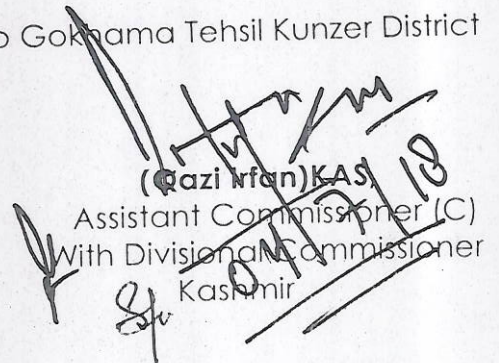 o Gokhama Tehsil Kunzer District
(Qazi Irfan)KAS,
Assistant Commissioner (C)
With Divisional Commissioner
Kashmir
04/7/18